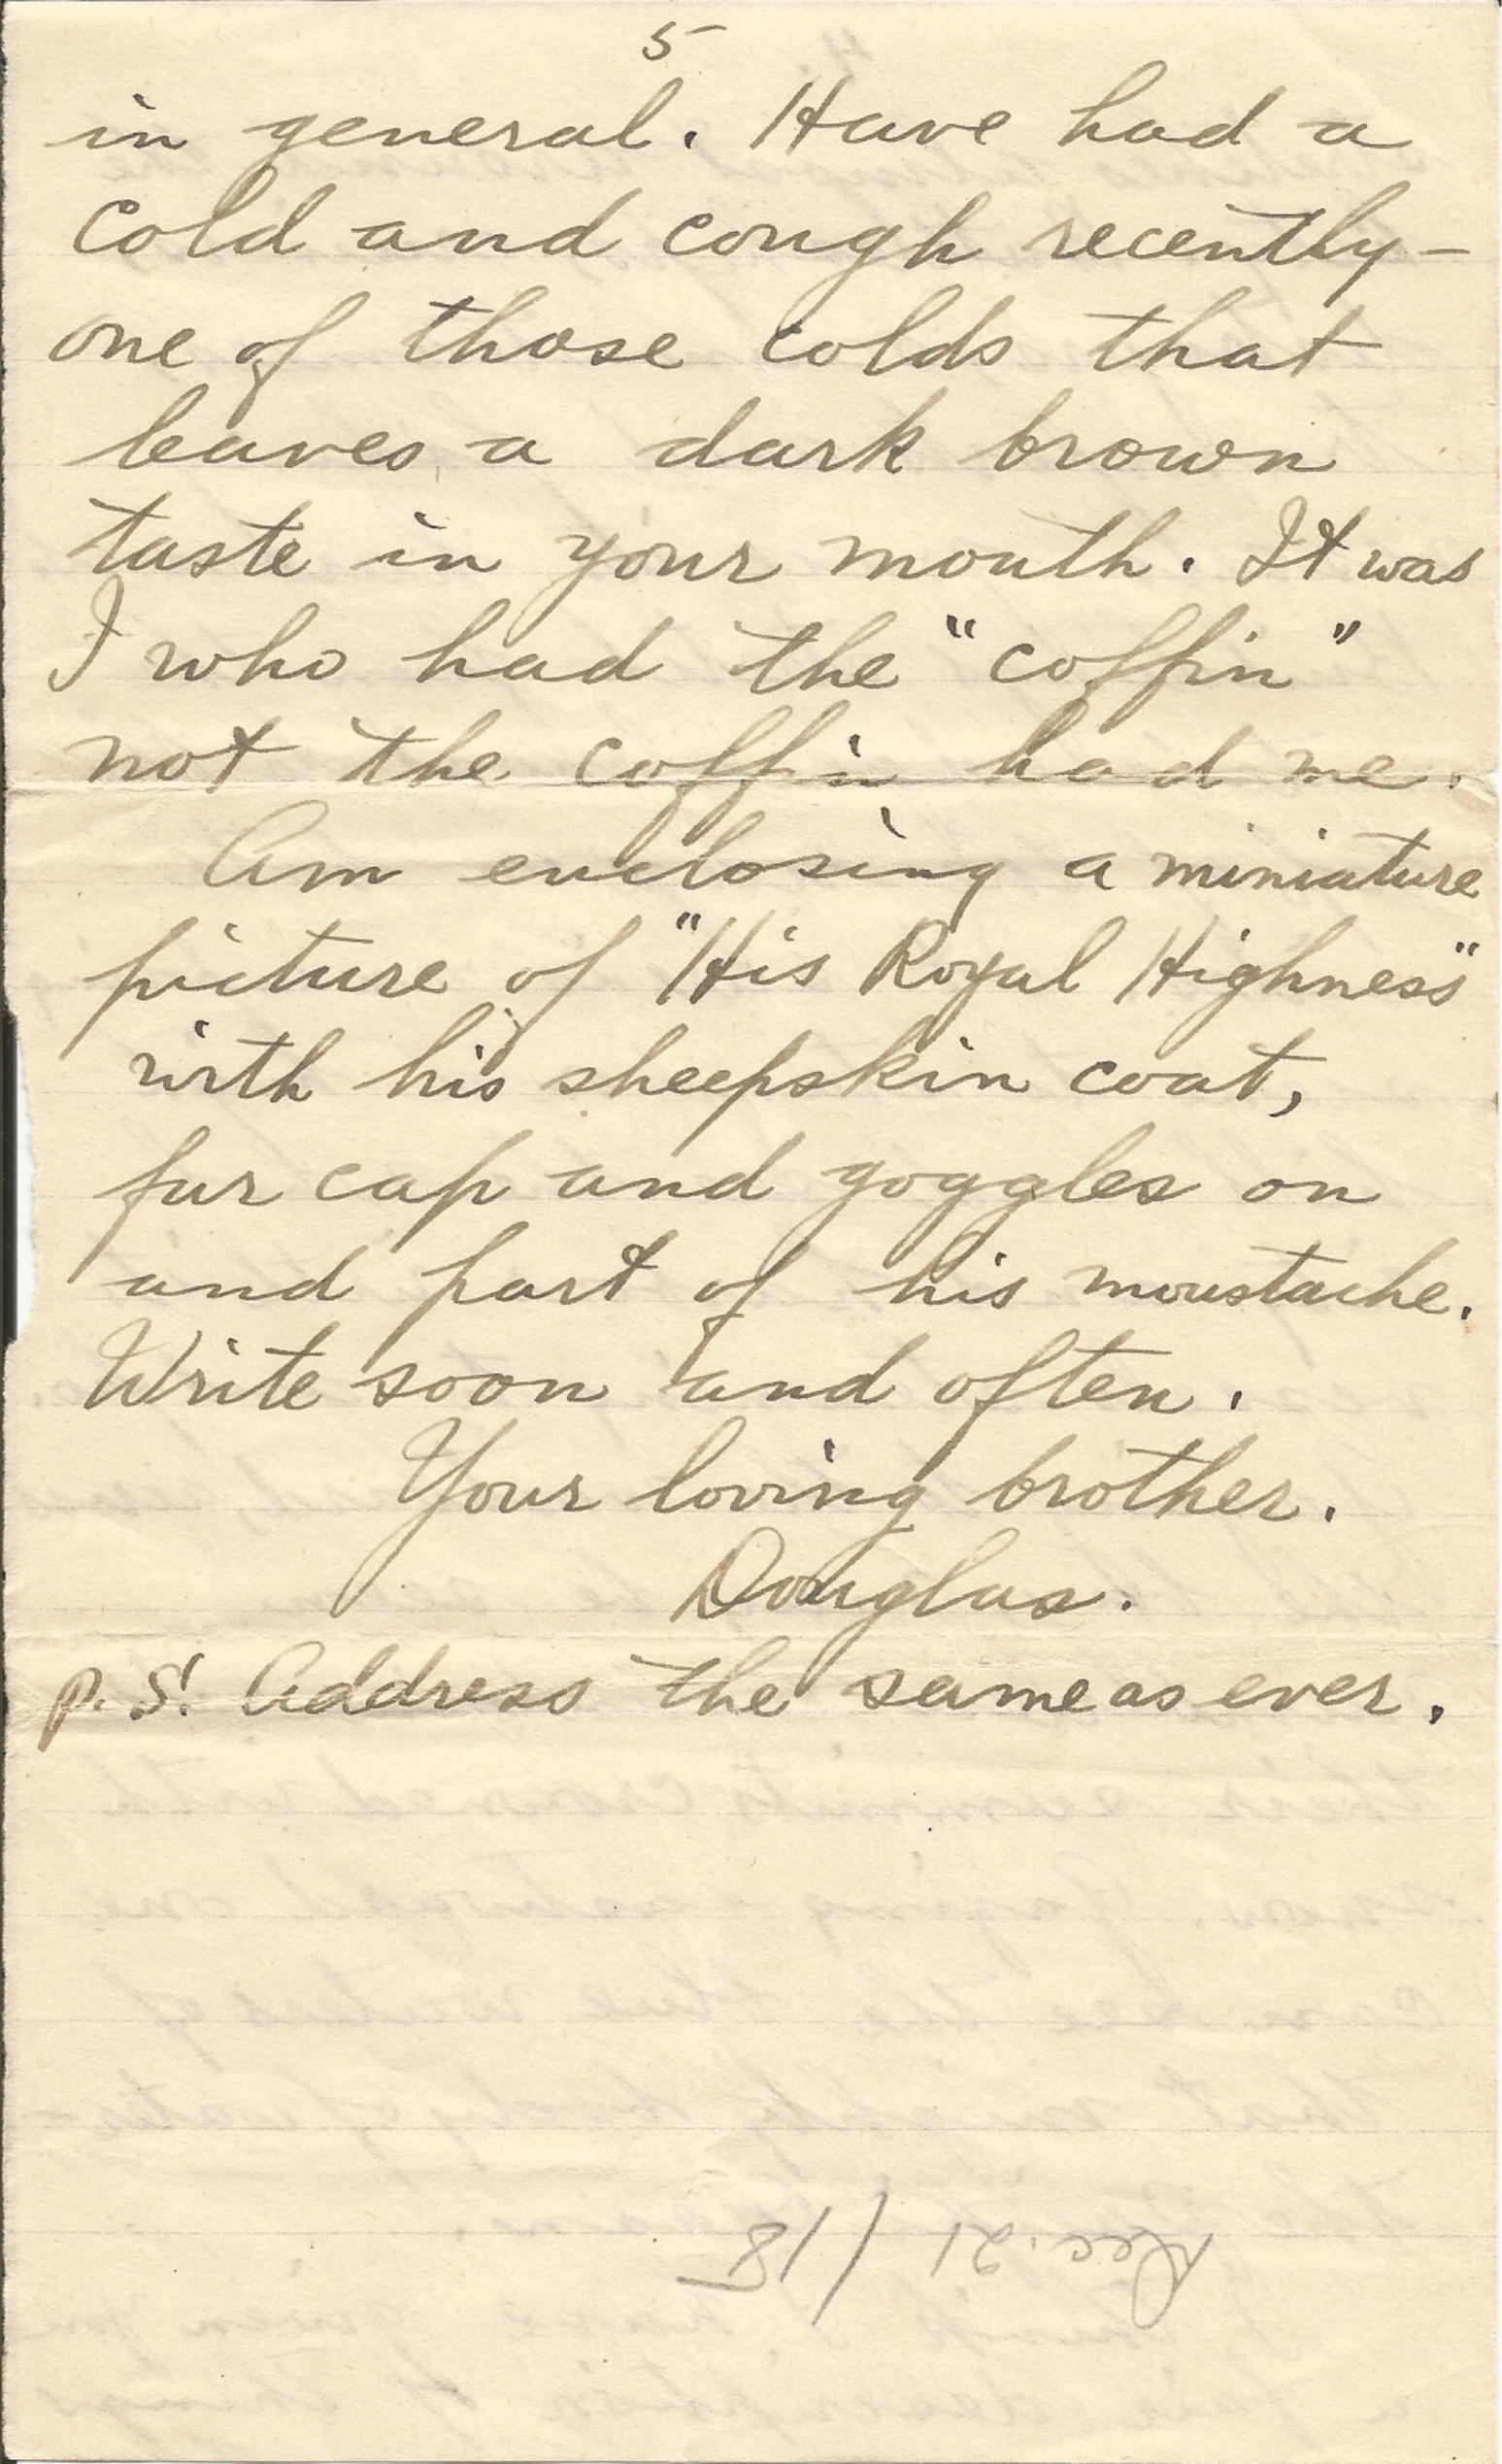 5
in general. Have had a
cold and cough recently –
one of those colds that
leaves a dark brown
taste in your mouth. It was
I who had the "coffin"
not the coffin had me.
Am enclosing a miniature
picture of "His Royal Highness"
with his sheepskin coat,
fur cap and goggles on
and part of his moustache.
Write soon and often.
Your loving brother.
Douglas.
P.S. Address the same as ever.
Dec. 21 / 18